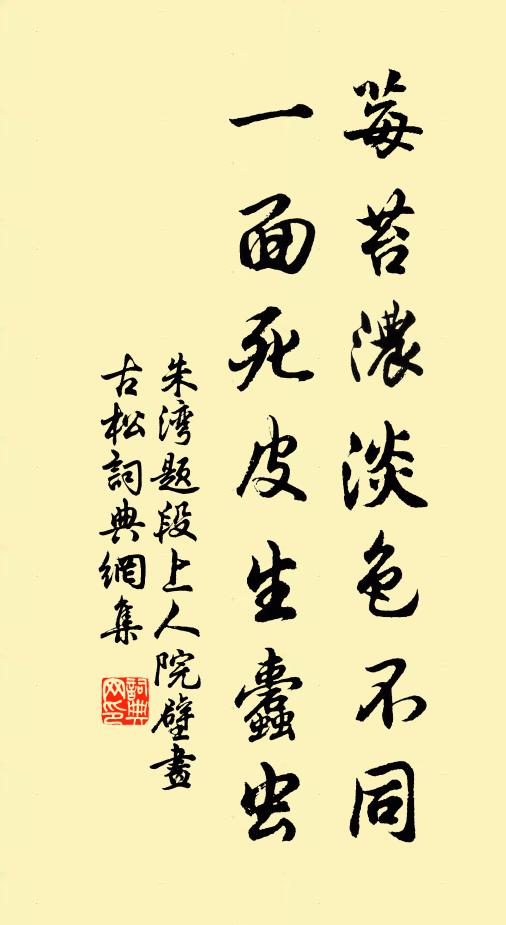 莓苔濃淡色不同
一面死皮生蠹虫
朱湾題段上人院壁畫
古松詞典網集
詞典
网印